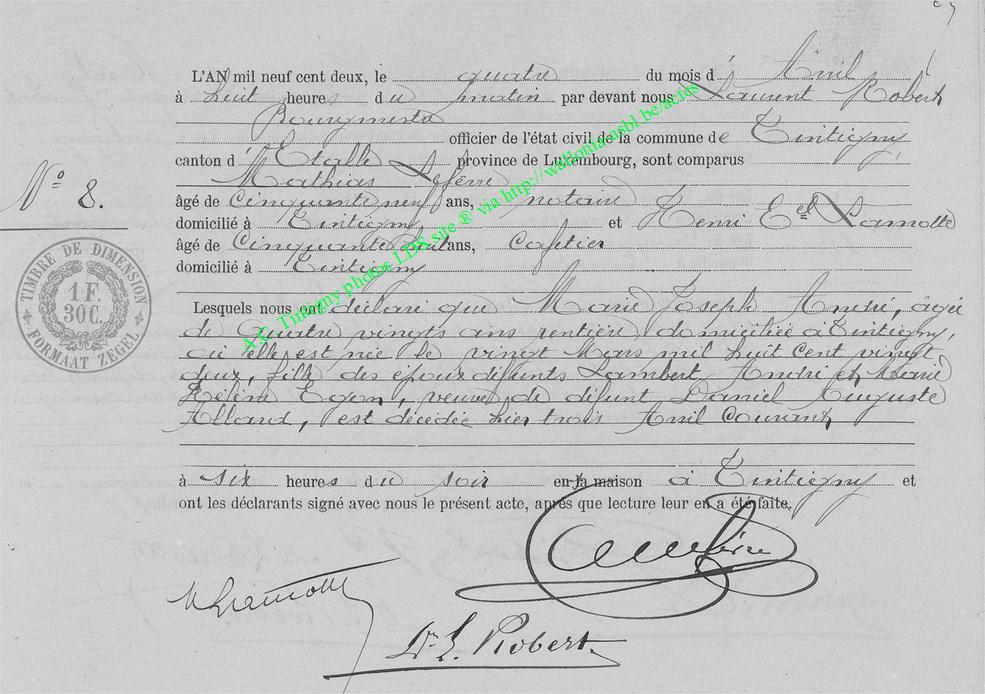 L'AN mil neuf cent deux, le quatre du mois d' Avril
à huit heures du matin par devant nous Laurent Robert
Bourgmestre
officier de l'état civil de la commune de Tintigny
canton d' Etalle province de Luxembourg, sont comparus
Mathias Lefèvre
N° 8.
âgé de Cinquante neuf ans, notaire
domicilié à Tintigny et Henri Lamotte
âgé de Cinquante huit ans, Cafetier
domicilié à Tintigny
TIMBRE DE DIMENSION
1 F.
30 C.
FORMAAT ZEGEL
A.L. Tintigny photos LDS site ® via http://wallonia.asbl.be/actes
Lesquels nous ont déclaré que Marie Joseph André, âgée
de quatre vingts ans rentière domiciliée à Tintigny,
où elle est née le vingt Mars mil huit cent vingt
deux, fille des époux défunts Lambert André et Marie
Hélène Egon, veuve de défunt Daniel Auguste
Allard, est décédée hier trois Avril Courant
à six heures du soir en la maison à Tintigny et
ont les déclarants signé avec nous le présent acte, après que lecture leur en a été faite.
H Lamotte
Dr L. Robert